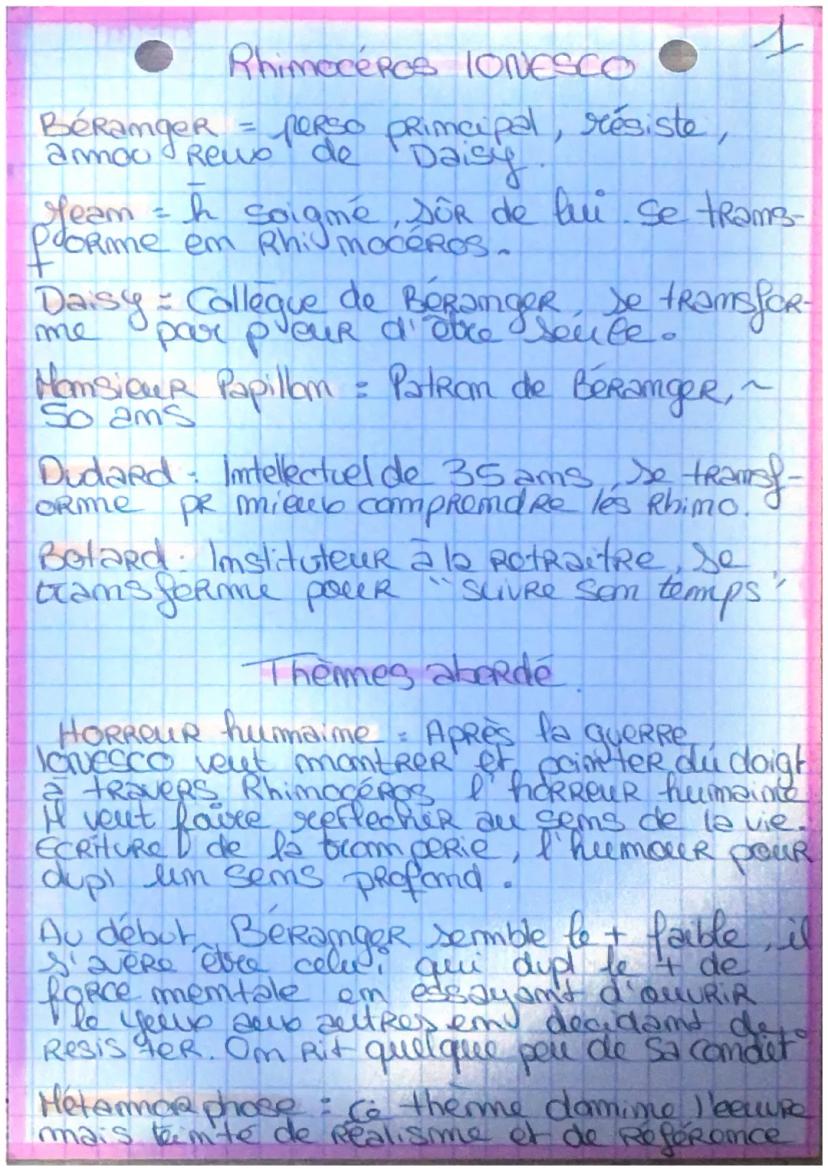 1
Rhinocéros IONESCO
Béranger = perso principal, résiste,
amoureux de Daisy.
Jean = h soigné, sûr de lui. Se trans-
forme en Rhinocéros.
Daisy = Collègue de Béranger, se transfor-
me par peur d'être seule.
Monsieur Papillon = Patron de Béranger, ~
50 ans
Dudard = Intellectuel de 35 ans, se transf-
orme pr mieux comprendre les Rhino.
Botard = Instituteur à la retraitre, se
transforme pour "suivre son temps"
Thèmes abordé
Horreur humaine = Après la guerre
IONESCO veut montrer et pointer du doigt
à travers Rhinocéros l'horreur humaine
Il veut faire reflechir au sens de la vie.
Ecriture de la tromperie, l'humour pour
dvpl un sens profond.
Au début, Béranger semble le + faible, il
s'avère être celui qui dvpl le + de
force mentale en essayant d'ouvrir
le yeux aux autres en decidant de
resister. On rit quelque peu de sa condit°
Métamorphose = Ce thème domine l'oeuvre
mais teinté de réalisme et de référence